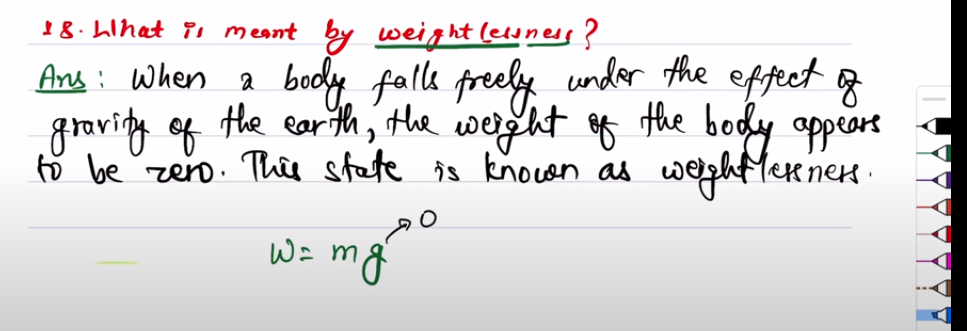 18. What is meant by weightlessness?
Ans: When a body falls freely under the effect of
gravity of the earth, the weight of the body appears
to be zero. This state is known as weightlessness.
0
W = mg